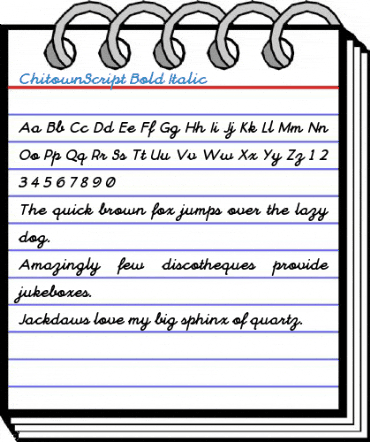 ChitownScript Bold Italic
Aa Bb Cc Dd Ee Ff Gg Hh Ii Jj Kk Ll Mm Nn
Oo Pp Qq Rr Ss Tt Uu Vv Ww Xx Yy Zz 1 2
3 4 5 6 7 8 9 0
The quick brown fox jumps over the lazy
dog.
Amazingly few discotheques provide
jukeboxes.
Jackdaws love my big sphinx of quartz.